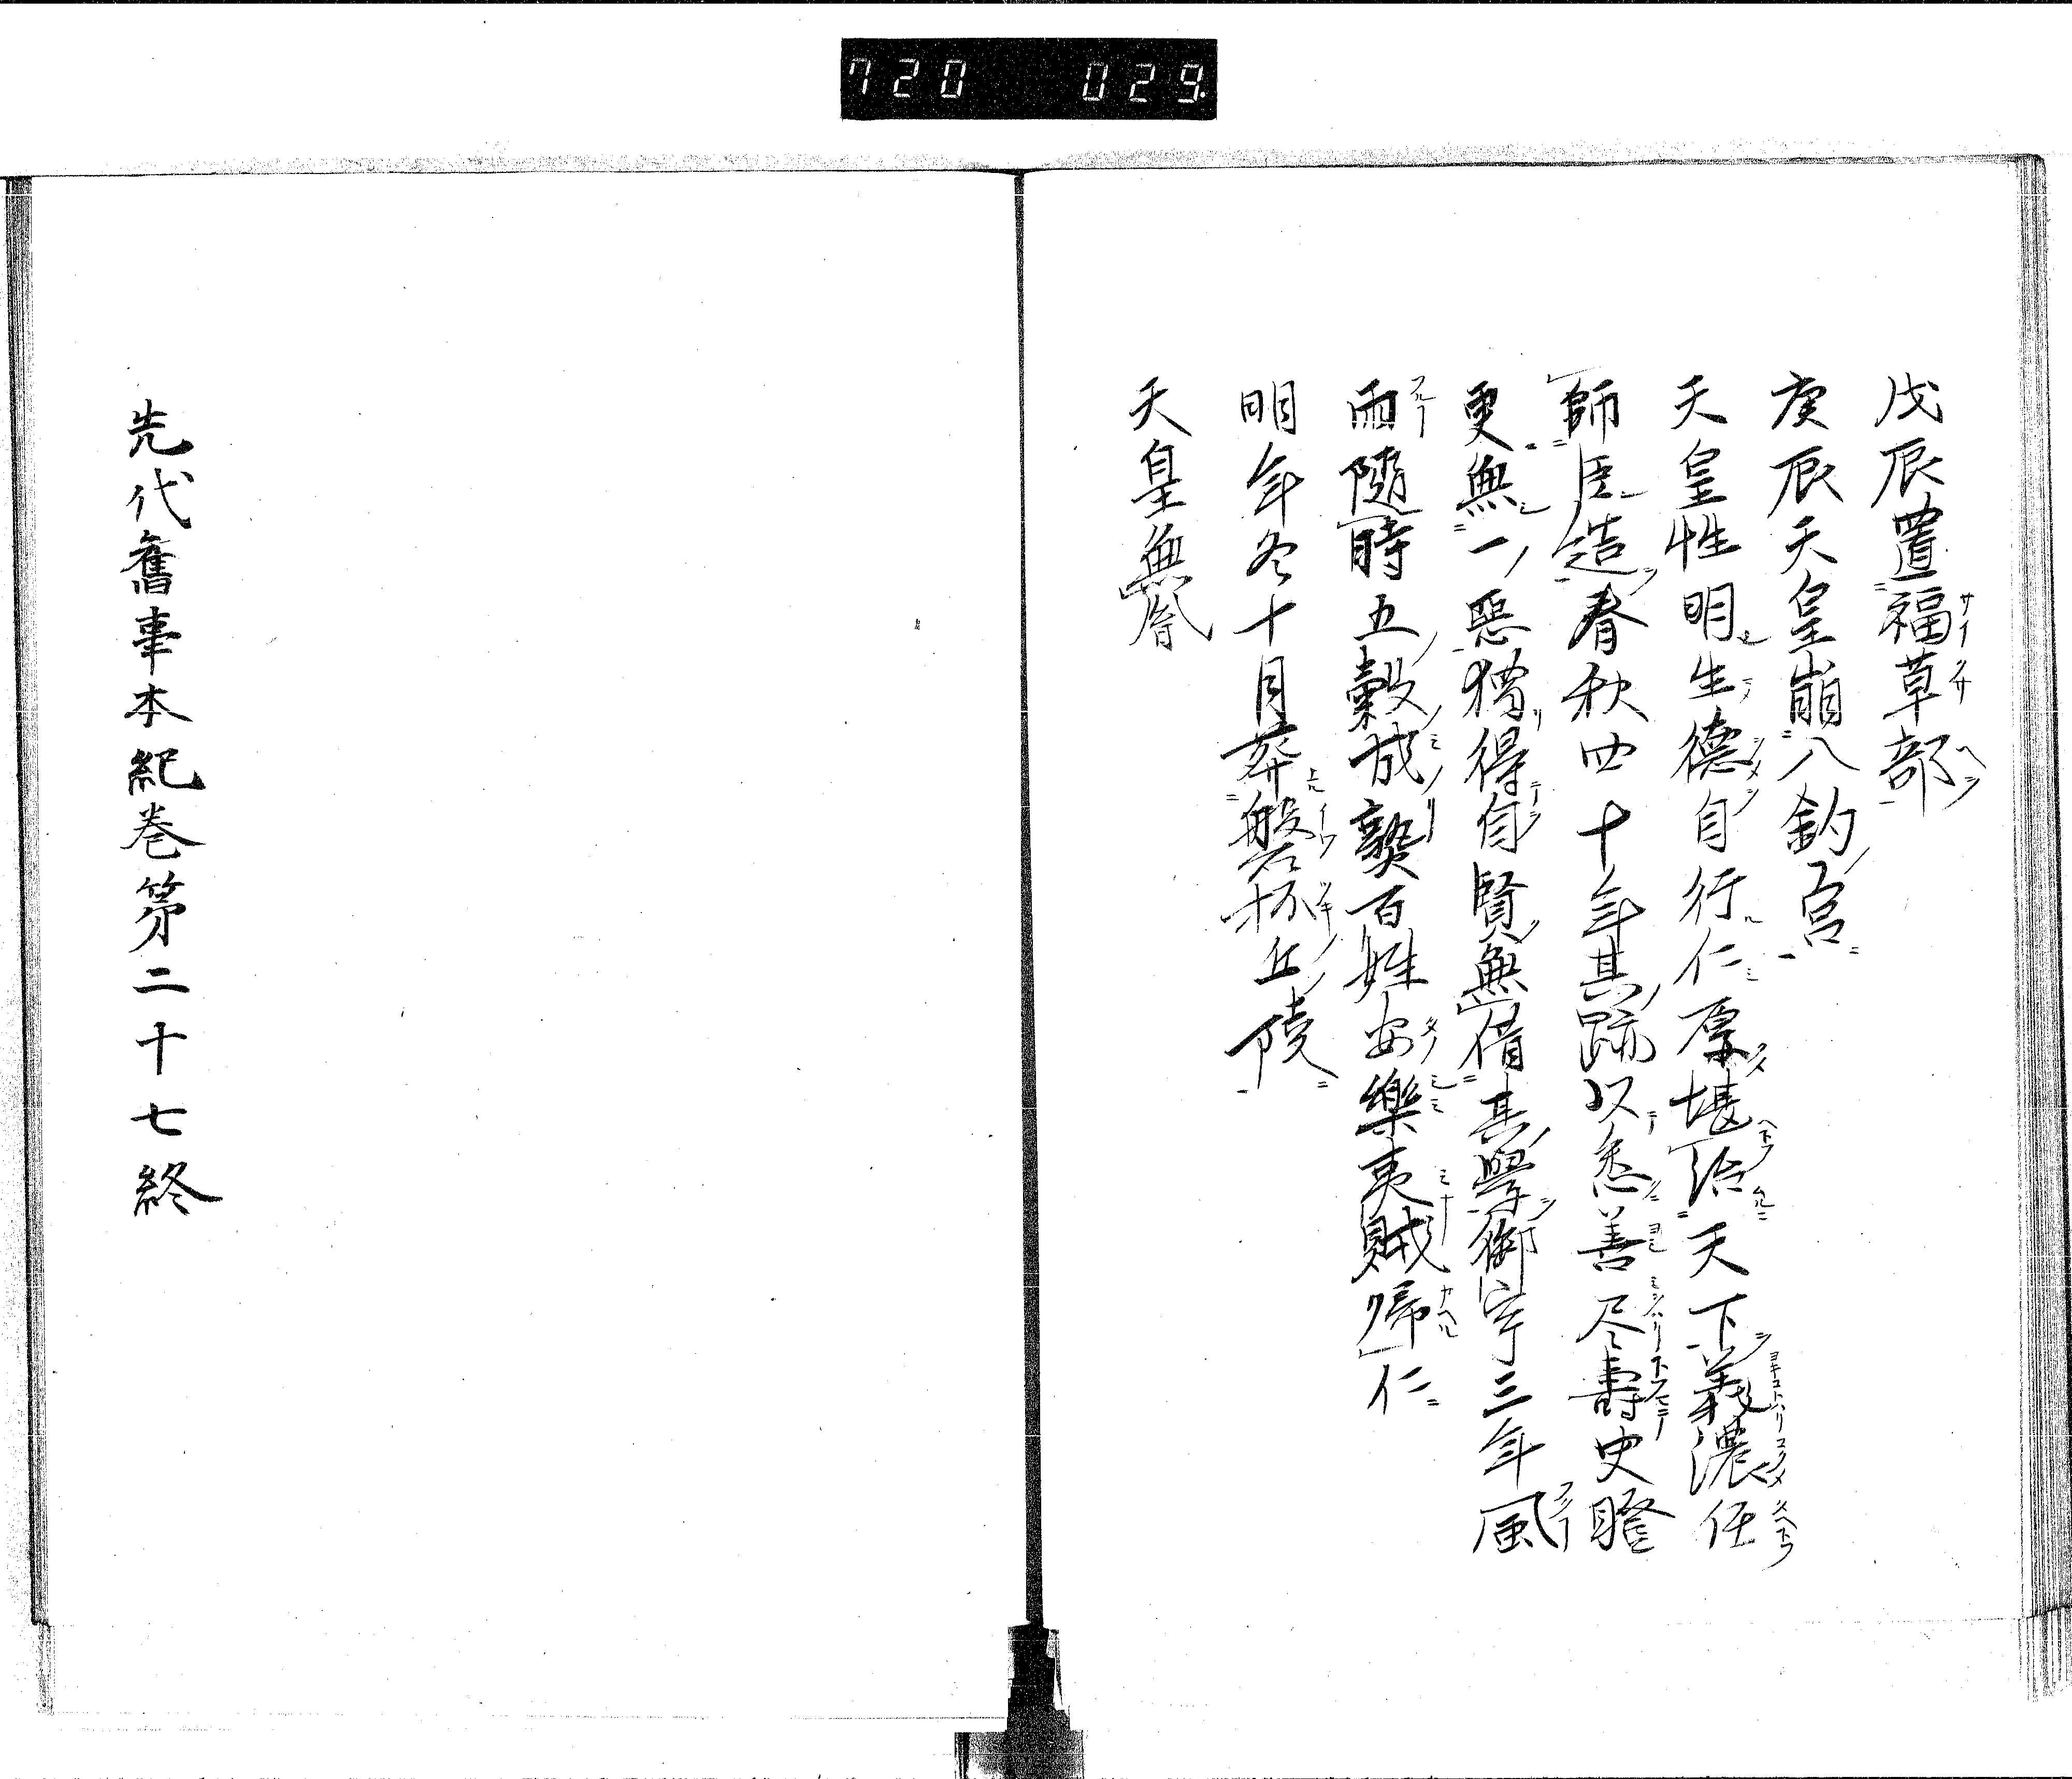 720 029
戊辰置福草部
庚辰天皇崩八釣宮
天皇性明生德自行仁厚堪治天下義濃任
師臣造春秋四十年其跡以悉善尽壽史瞪
更無一惡猶得自賢無借其學御宇三年風
雨隨時五穀成熟百姓安樂夷賊歸仁
明年冬十月葬磐杯丘陵
天皇無胤
先代舊事本紀巻第二十七終